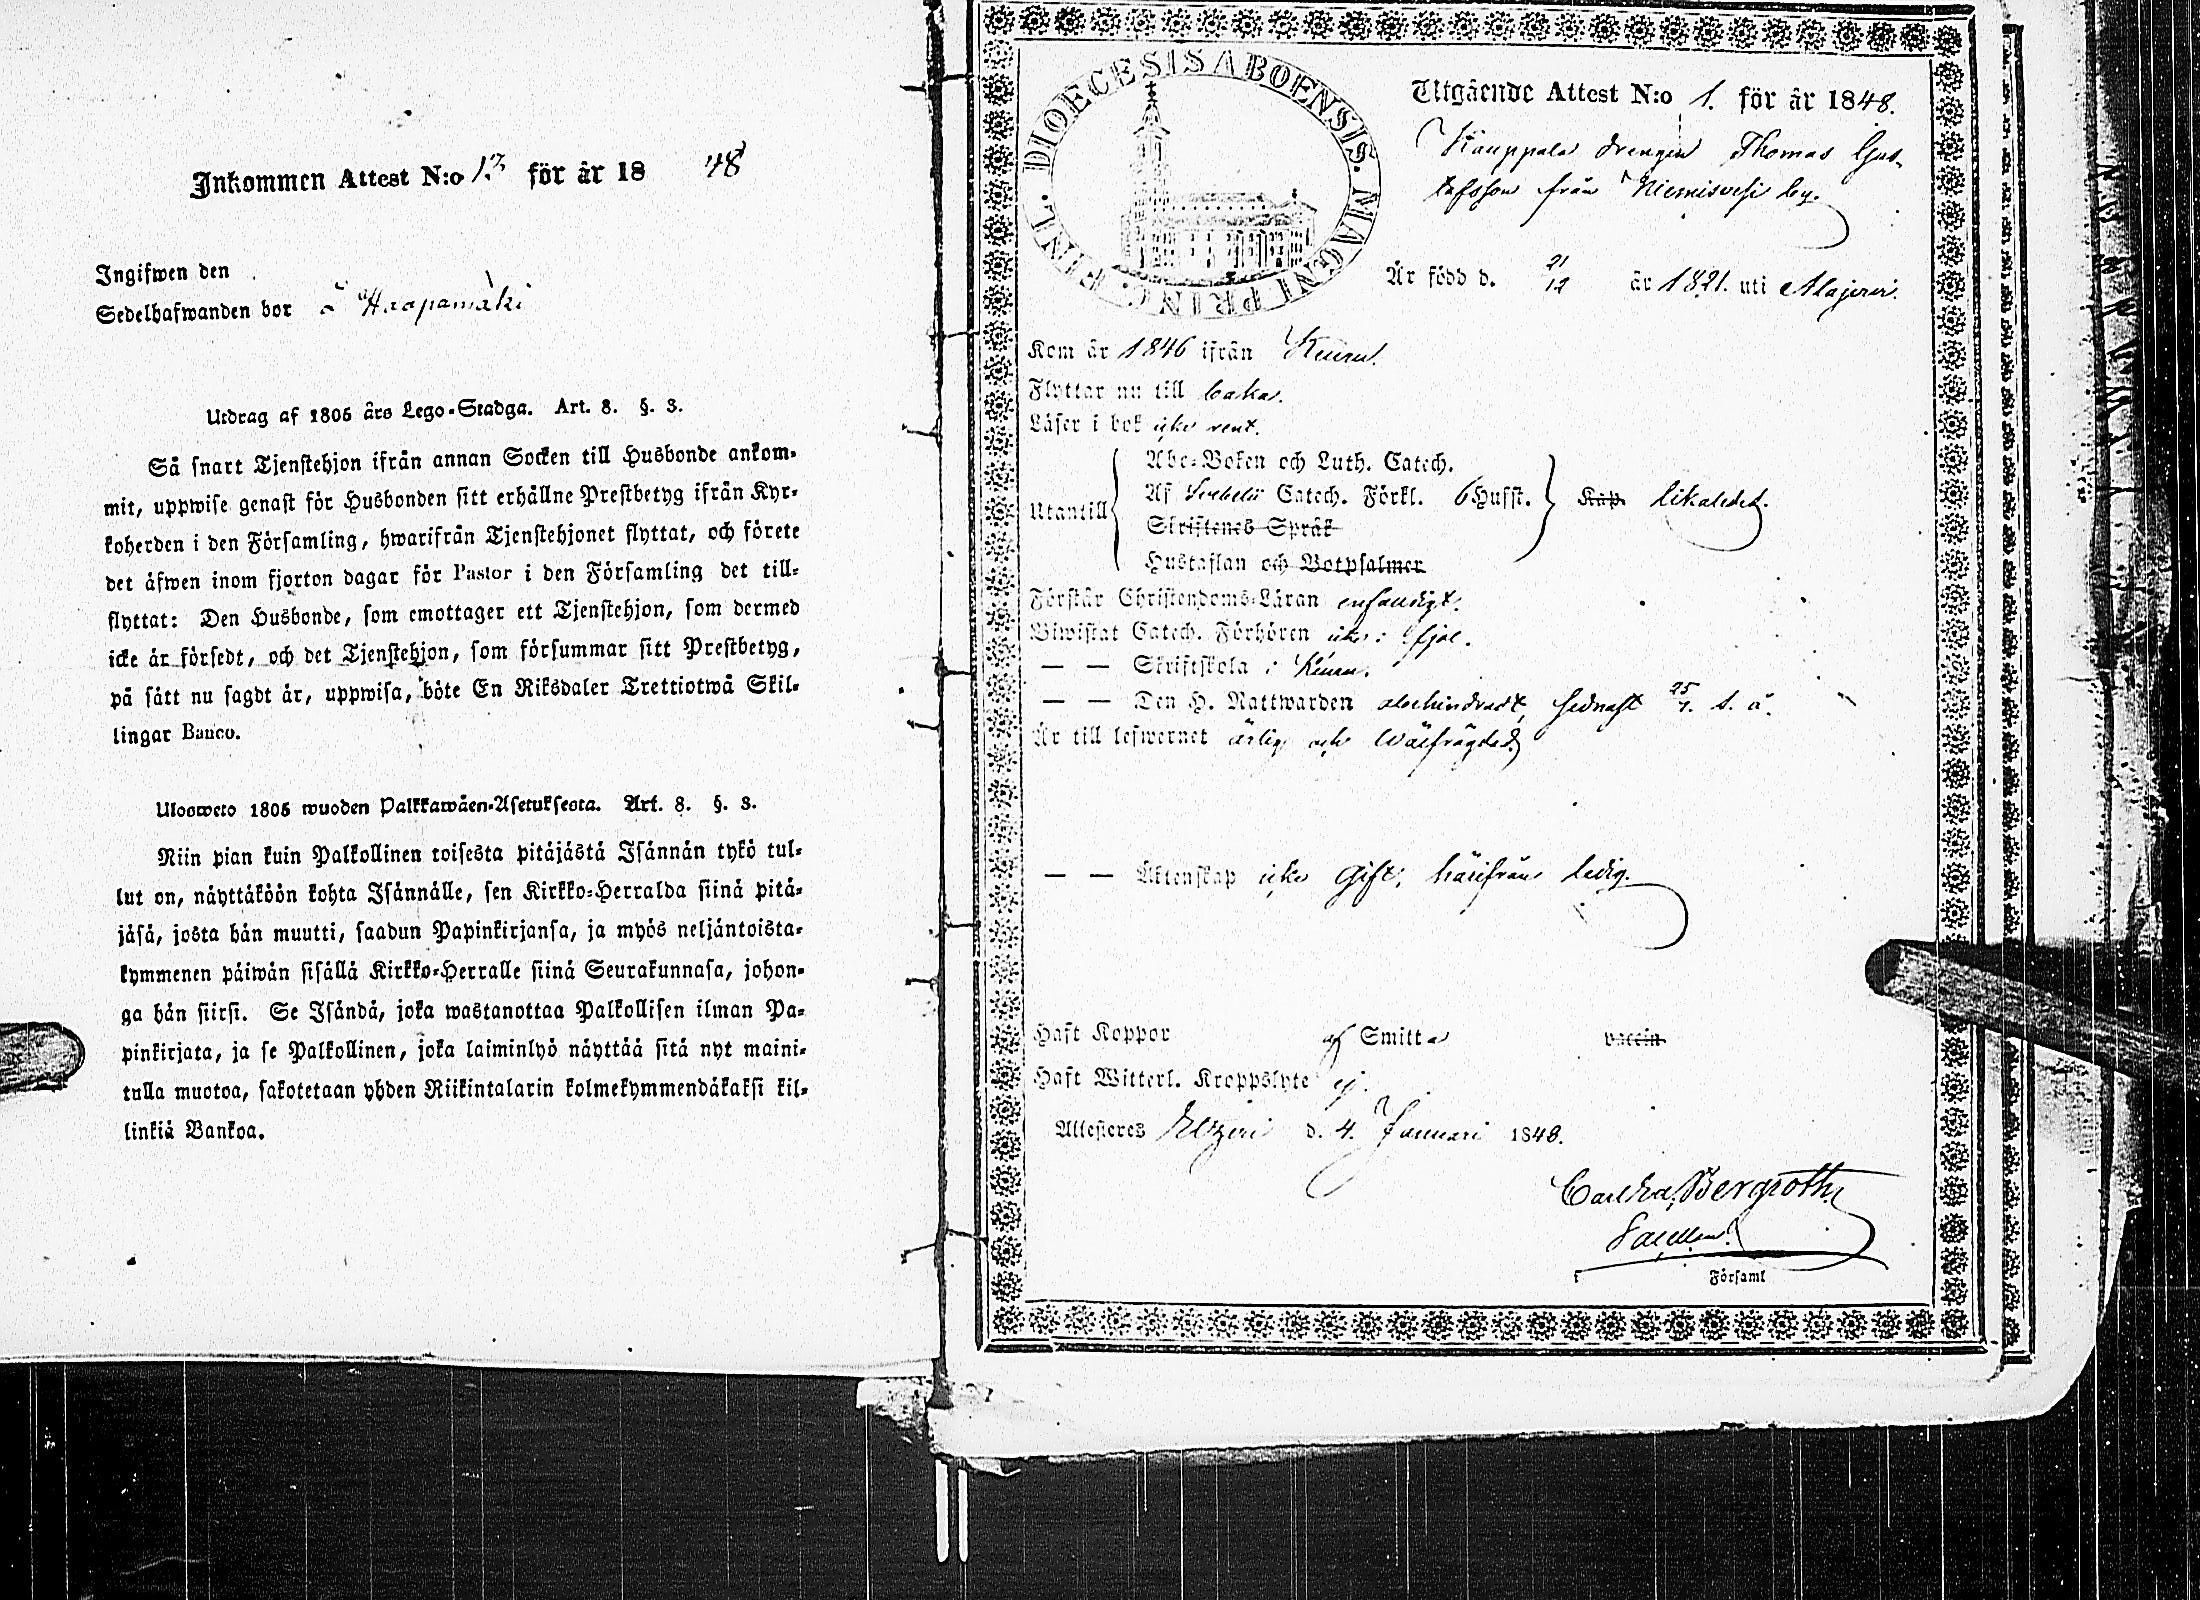 Inkommen Attest N:o 13 för år 18 48
Ingifwen den
Sedelhafwanden bor i Haapamäki
Utdrag af 1805 års Lego-Stadga. Art. 8. §. 3.
Så snart Tjenstehjon ifrån annan Socken till Husbonde ankom-
mit, uppwise genast för Husbonden sitt erhållne Prestbetyg ifrån Kyr-
koherden i den Församling, hwarifrån Tjenstehjonet flyttat, och förete
det äfwen inom fjorton dagar för Pastor i den Församling det till-
flyttat: Den Husbonde, som emottager ett Tjenstehjon, som dermed
icke är försedt, och det Tjenstehjon, som försummar sitt Prestbetyg,
på sätt nu sagdt är, uppwisa, böte En Riksdaler Trettiotwå Skil-
lingar Banco.
Ulosweto 1805 wuoden Palkkawäen-Asetuksesta. Art. 8. §. 3.
Niin pian kuin Palkollinen toisesta pitäjästä Isännän tykö tul-
lut on, näyttäköön kohta Isännälle, sen Kirkko-Herralda siinä pitä-
jäsä, josta hän muutti, saadun Papinkirjansa, ja myös neljäntoista-
kymmenen päiwän sisällä Kirkko-Herralle siinä Seurakunnasa, johon-
ga hän siirsi. Se Isändä, joka wastanottaa Palkollisen ilman Pa-
pinkirjata, ja se Palkollinen, joka laiminlyö näyttää sitä nyt maini-
tulla muotoa, sakotetaan yhden Riikintalarin kolmekymmendäkaksi kil-
linkiä Bankoa.
DIOECESIS ABOENSIS. MAGNI PRINC. FINL.
Utgående Attest N:o 1. för år 1848.
Kauppala drengen Thomas Gus-
tafsson från Niemisvesi by.
Är född d. 21/12 år 1821. uti Alajervi.
Kom år 1846 ifrån Keuru.
Flyttar nu till
Läser i bok icke rent.
Abc-Boken och Luth. Catech.
Utantill Af Svebelii Catech. Förkl. 6 Husst. Kap. likaledes.
Skriftenes Språk
Hustaflan och Botpsalmer
Förstår Christendoms-Läran enfaldigt.
Biwistat Catech. Förhören icke i fjol.
— — Skriftskola i Keuru.
— — Den H. Nattwarden obehindradt, sednast 25/7. s. å.
Är till lefwernet ärlig och wälfrägdad
— — Äktenskap icke Gift; härifrån ledig.
Haft Koppor af Smitta vaccin.
Haft Witterl. Kroppslyte ej.
Attesteres Etzeri d. 4. Januari 1848.
Bergroth
Församl